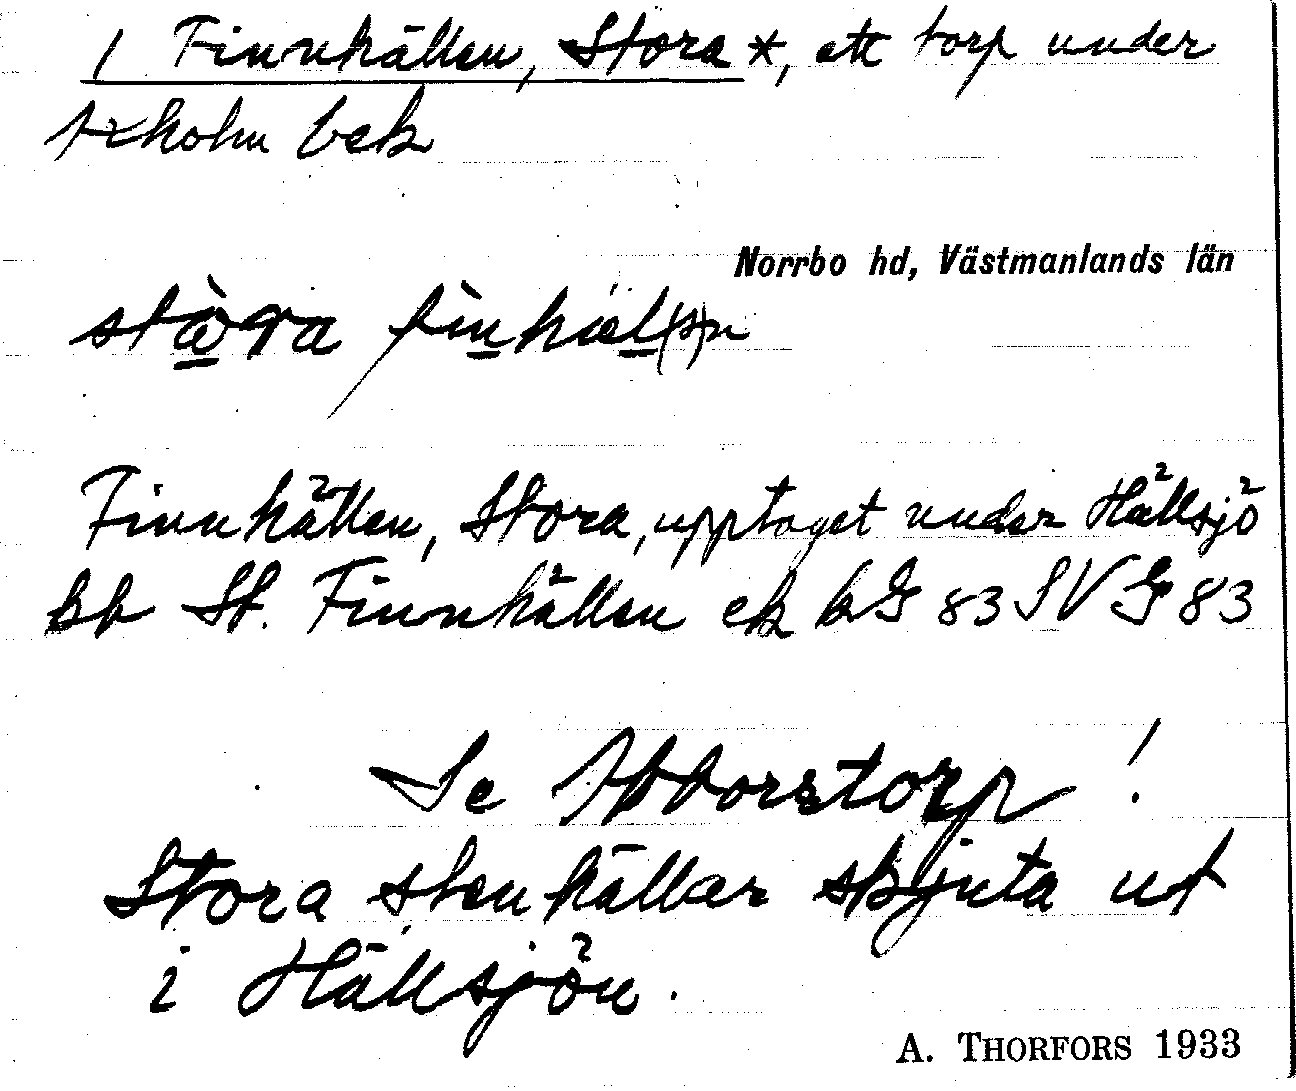 1 Finnhällen, Stora *, ett torp under
Axholm bek
Norrbo hd, Västmanlands län
Finnhällen, Stora, upptaget under Hällsjö
bb St. Finnhällen ek bG 83 SV G 83
Se Abborstorp!
Stora stenhällar skjuta ut
i Hällsjön.
A. THORFORS 1933